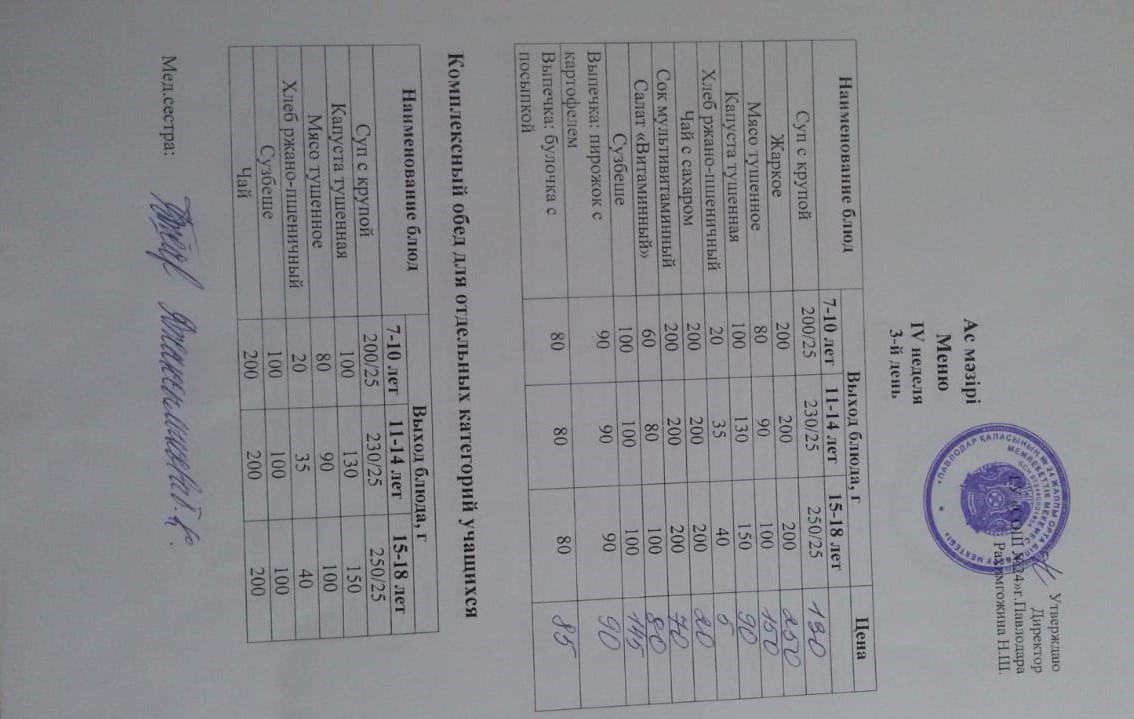 Утверждаю
Директор
ГУ «СОШ №24»г.Павлодара
Рахимгожина Н.Ш.
Ас мәзірі
Меню
IV неделя
3-й день
Наименование блюд Выход блюда, г Цена
7-10 лет 11-14 лет 15-18 лет
Суп с крупой 200/25 230/25 250/25 190
Жаркое 200 200 200 250
Мясо тушенное 80 90 100 150
Капуста тушенная 100 130 150 90
Хлеб ржано-пшеничный 20 35 40 5
Чай с сахаром 200 200 200 20
Сок мультивитаминный 200 200 200 70
Салат «Витаминный» 60 80 100 80
Сузбеше 100 100 100 145
Выпечка: пирожок с 90 90 90 90
картофелем
Выпечка: булочка с 80 80 80 85
посыпкой
Комплексный обед для отдельных категорий учащихся
Наименование блюд Выход блюда, г
7-10 лет 11-14 лет 15-18 лет
Суп с крупой 200/25 230/25 250/25
Капуста тушенная 100 130 150
Мясо тушенное 80 90 100
Хлеб ржано-пшеничный 20 35 40
Сузбеше 100 100 100
Чай 200 200 200
Мед.сестра: